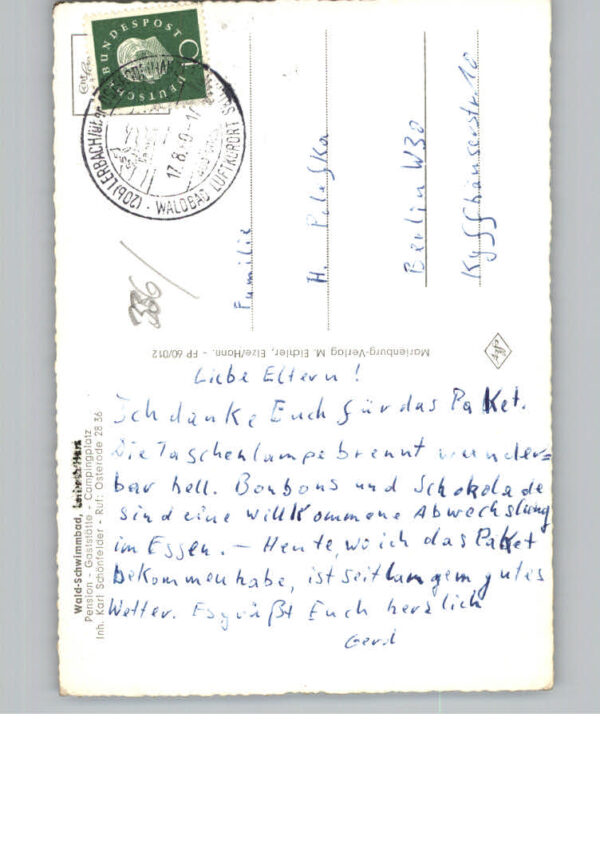 Liebe Eltern!
Ich danke Euch für das Paket.
Die Taschenlampe brennt wunder=
bar hell. Bonbons und Schokolade
sind eine willkommene Abwechslung
im Essen. – Heute, wo ich das Paket
bekommen habe, ist seit langem gutes
Wetter. Es grüßt Euch herzlich
Gerd
Familie
H. Poleska
Berlin W30
Kyffhäuserstr 10
386/
DEUTSCHE BUNDESPOST
(20b) LERBACH/über
WALDBAD LUFTKURORT
17.8.
Marienburg-Verlag M. Eichler, Elze/Hann. - FP 60/012
Wald-Schwimmbad,
Pension - Gaststätte - Campingplatz
Inh. Karl Schönfelder - Ruf: Osterode 28 36